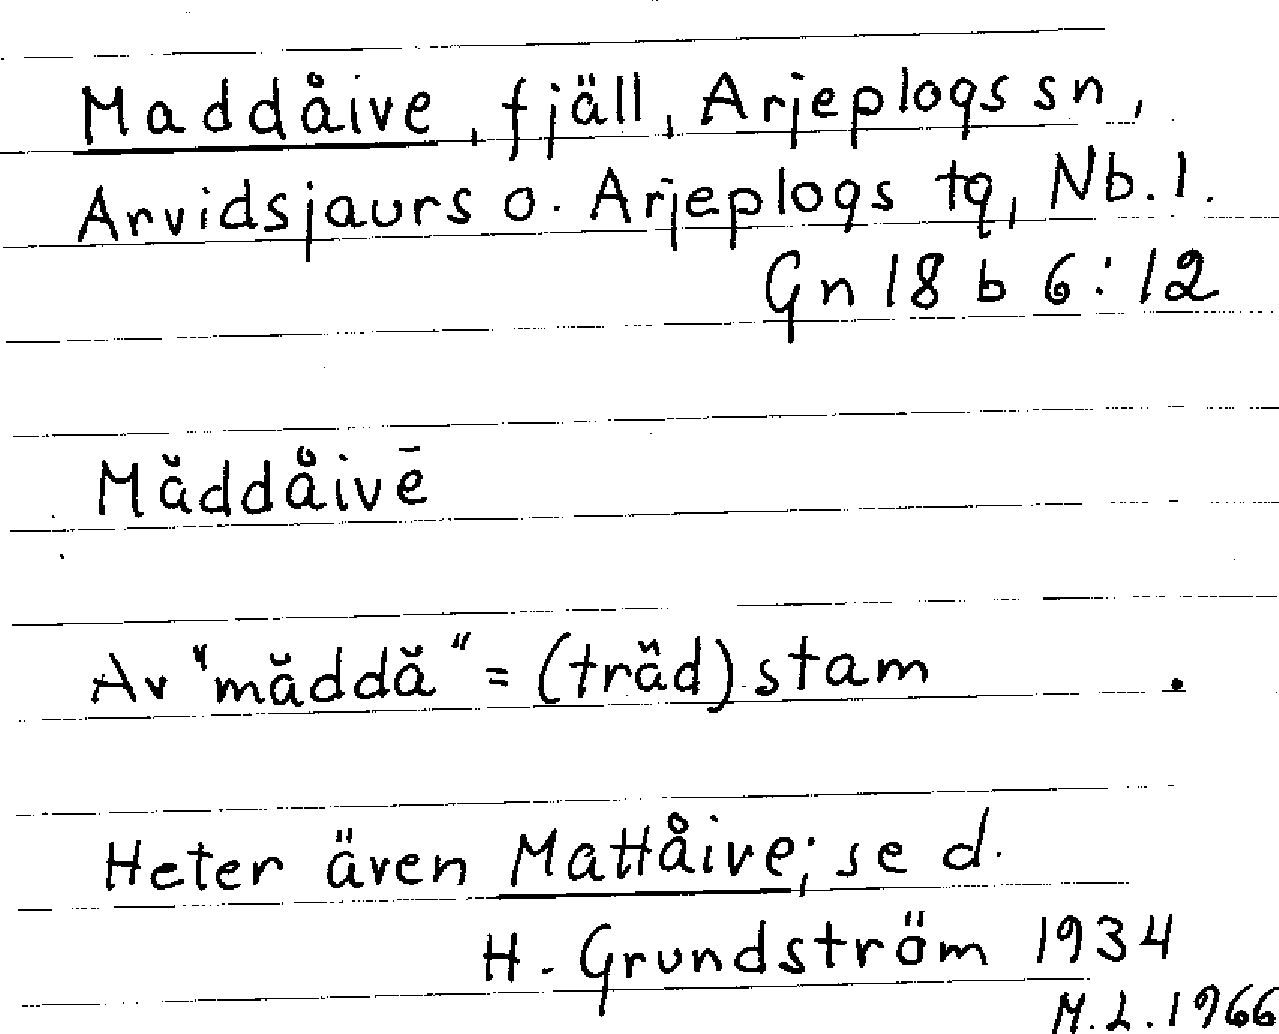 Maddåive, fjäll, Arjeplogs sn,
Arvidsjaurs o. Arjeplogs tg, Nb. l.
Gn 18 b 6:12
Măddåivē
Av "măddă" = (träd) stam
Heter även Mattåive; se d.
H. Grundström 1934
M.L. 1966